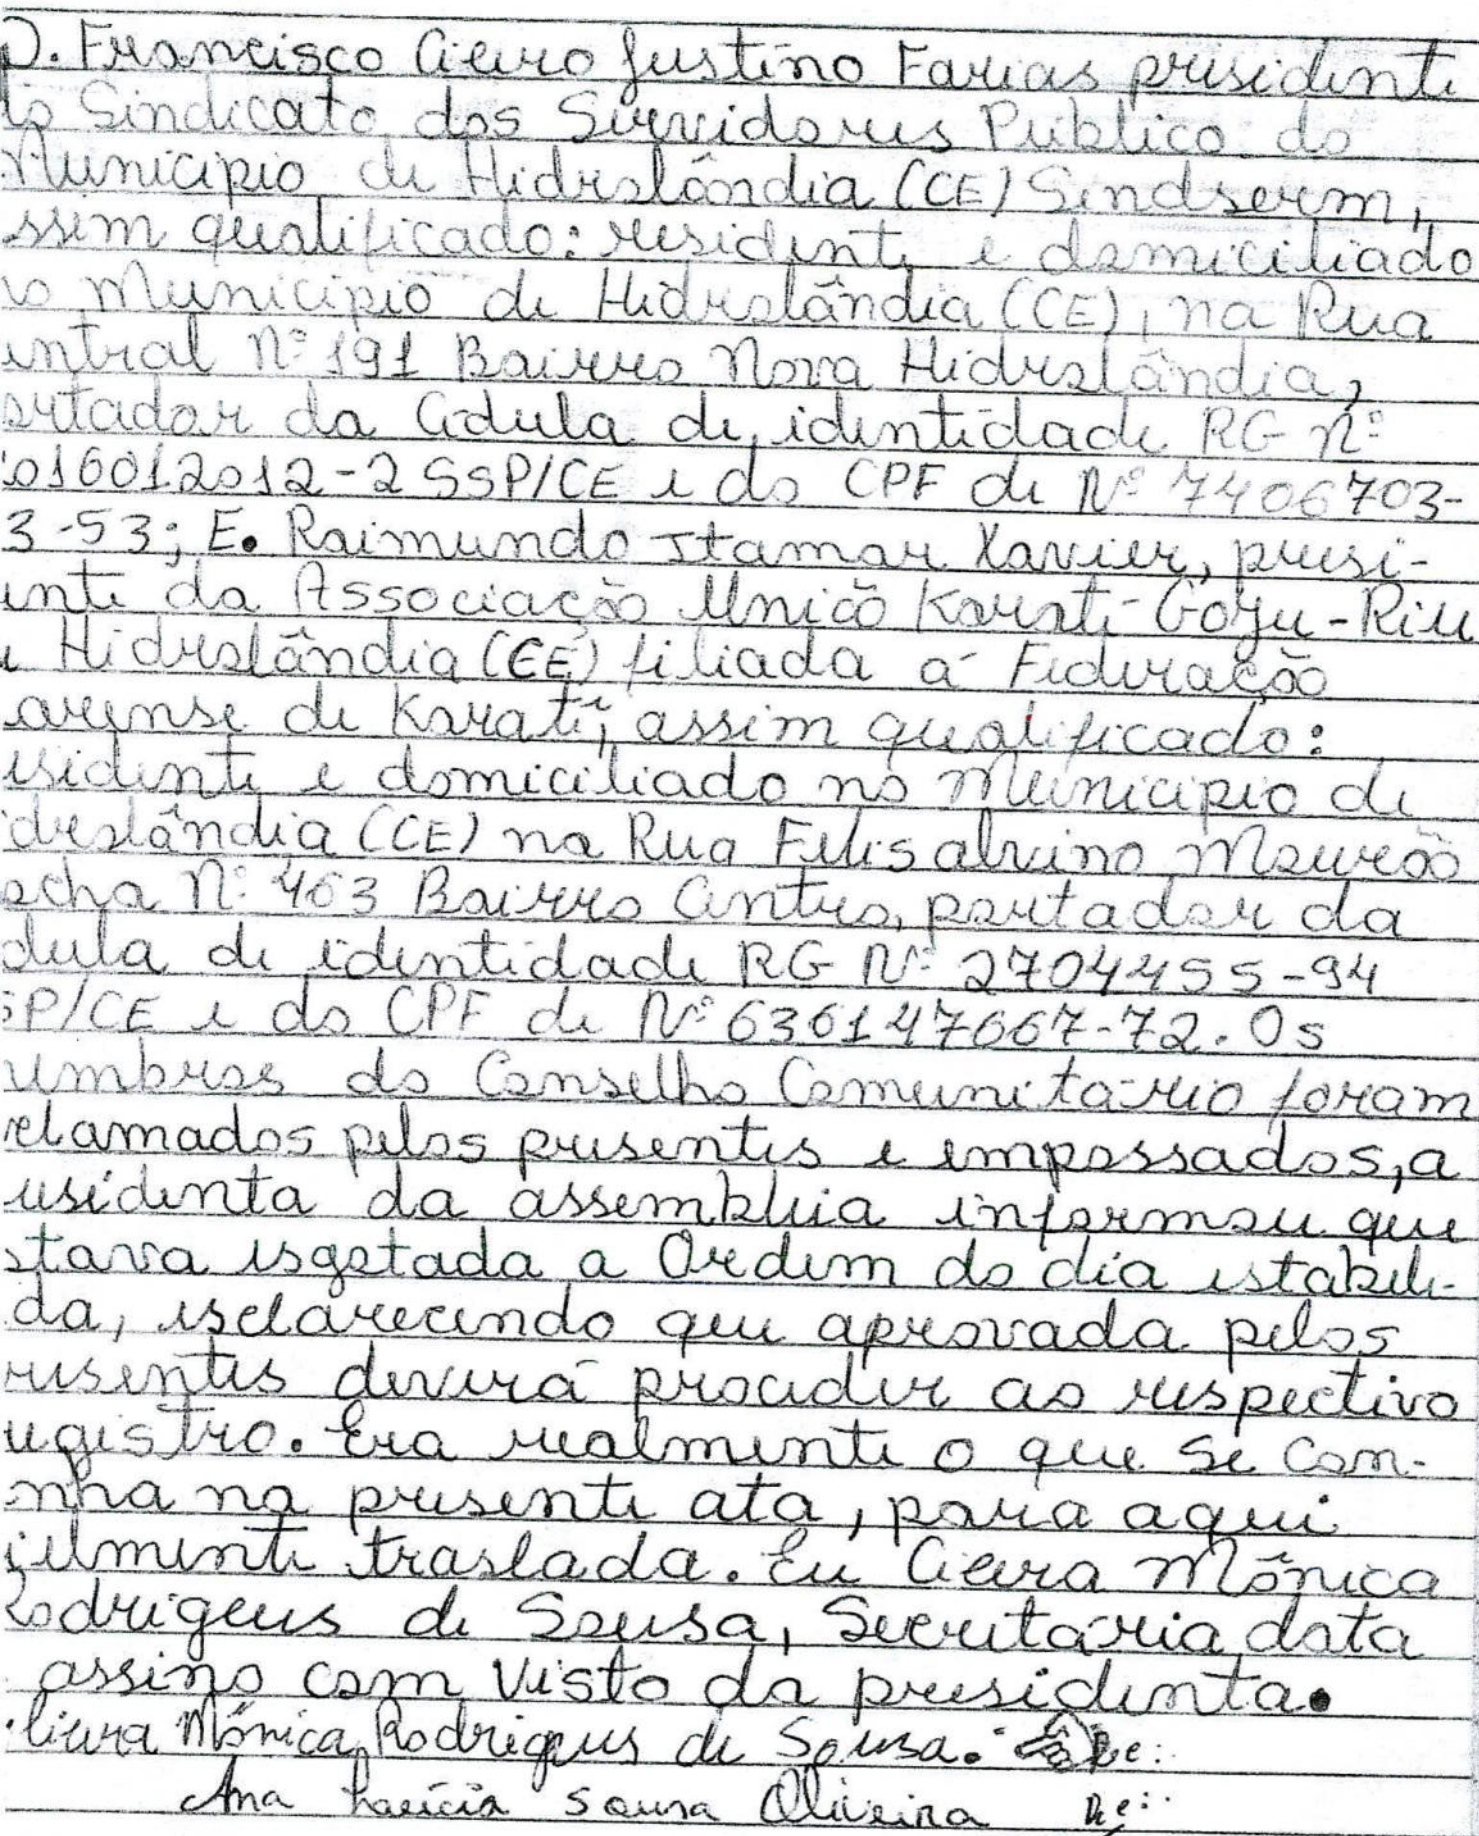 D. Francisco Cícero Justino Farias presidente
do Sindicato dos Servidores Público do
Município de Hidrolândia (CE) Sindserm,
ssim qualificado: residente e domiciliado
no Município de Hidrolândia (CE), na Rua
entral Nº 191 Bairro Nova Hidrolândia,
ortador da Cédula de identidade RG Nº
2016012012-2 SSP/CE e do CPF de Nº 7406703-
3-53; E. Raimundo Itamar Xavier, presi-
ente da Associação União Karatê-Goju-Riu
e Hidrolândia (CE) filiada á Federação
arense de Karatê, assim qualificado:
esidente e domiciliado no Município de
idrolândia (CE) na Rua Felisalvino Mourão
ocha Nº 463 Bairro Centro, portador da
dula de identidade RG Nº 2704455-94
SP/CE e do CPF de Nº 636147667-72. Os
embros do Conselho Comunitário foram
clamados pelos presentes e empossados, a
esidenta da assembleia informou que
stava esgotada a Ordem do dia estabele-
da, esclarecendo que aprovada pelos
resentes deverá proceder ao respectivo
egistro. Era realmente o que se con-
inha na presente ata, para aqui
ielmente traslada. Eu Cícera Mônica
Rodrigeus de Sousa, Secretária data
assino com Visto da presidenta.
Cícera Mônica Rodrigeus de Sousa.
Ana Laricia Sousa Oliveira